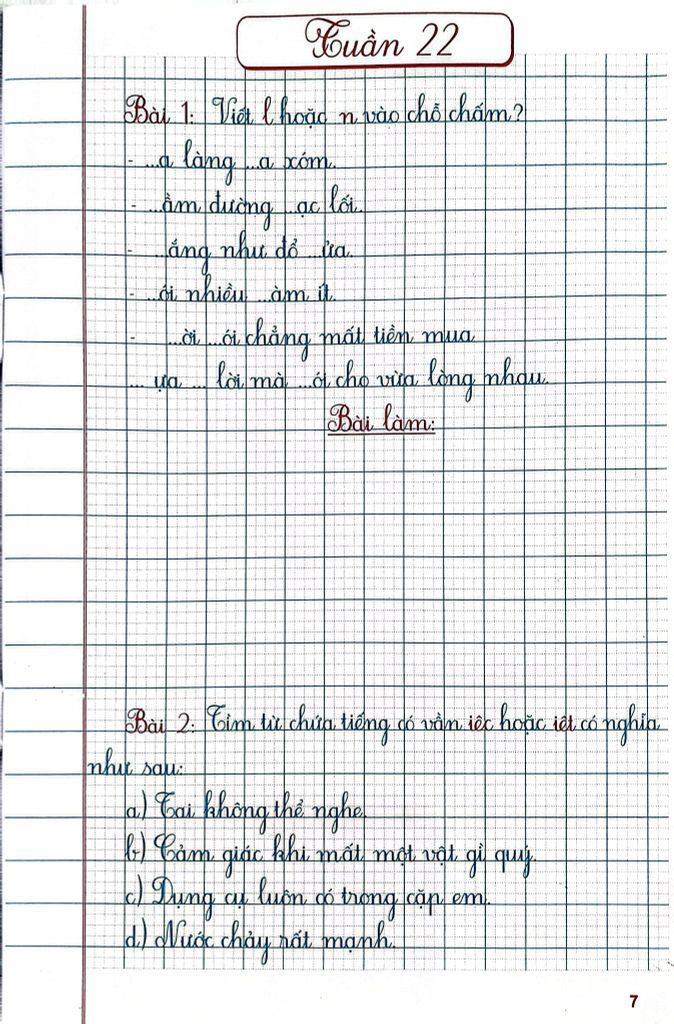 Tuần 22
Bài 1: Viết l hoặc n vào chỗ chấm?
- ...a làng ...a xóm.
- ...ầm đường ...ạc lối.
- ...ắng như đổ ...ửa.
- ...ói nhiều ...àm ít.
- ...ời ...ói chẳng mất tiền mua
... ựa ... lời mà ...ói cho vừa lòng nhau.
Bài làm:
Bài 2: Tìm từ chứa tiếng có vần iêc hoặc iêt có nghĩa
như sau:
a) Tai không thể nghe.
b) Cảm giác khi mất một vật gì quý.
c) Dụng cụ luôn có trong cặp em.
d) Nước chảy rất mạnh.
7